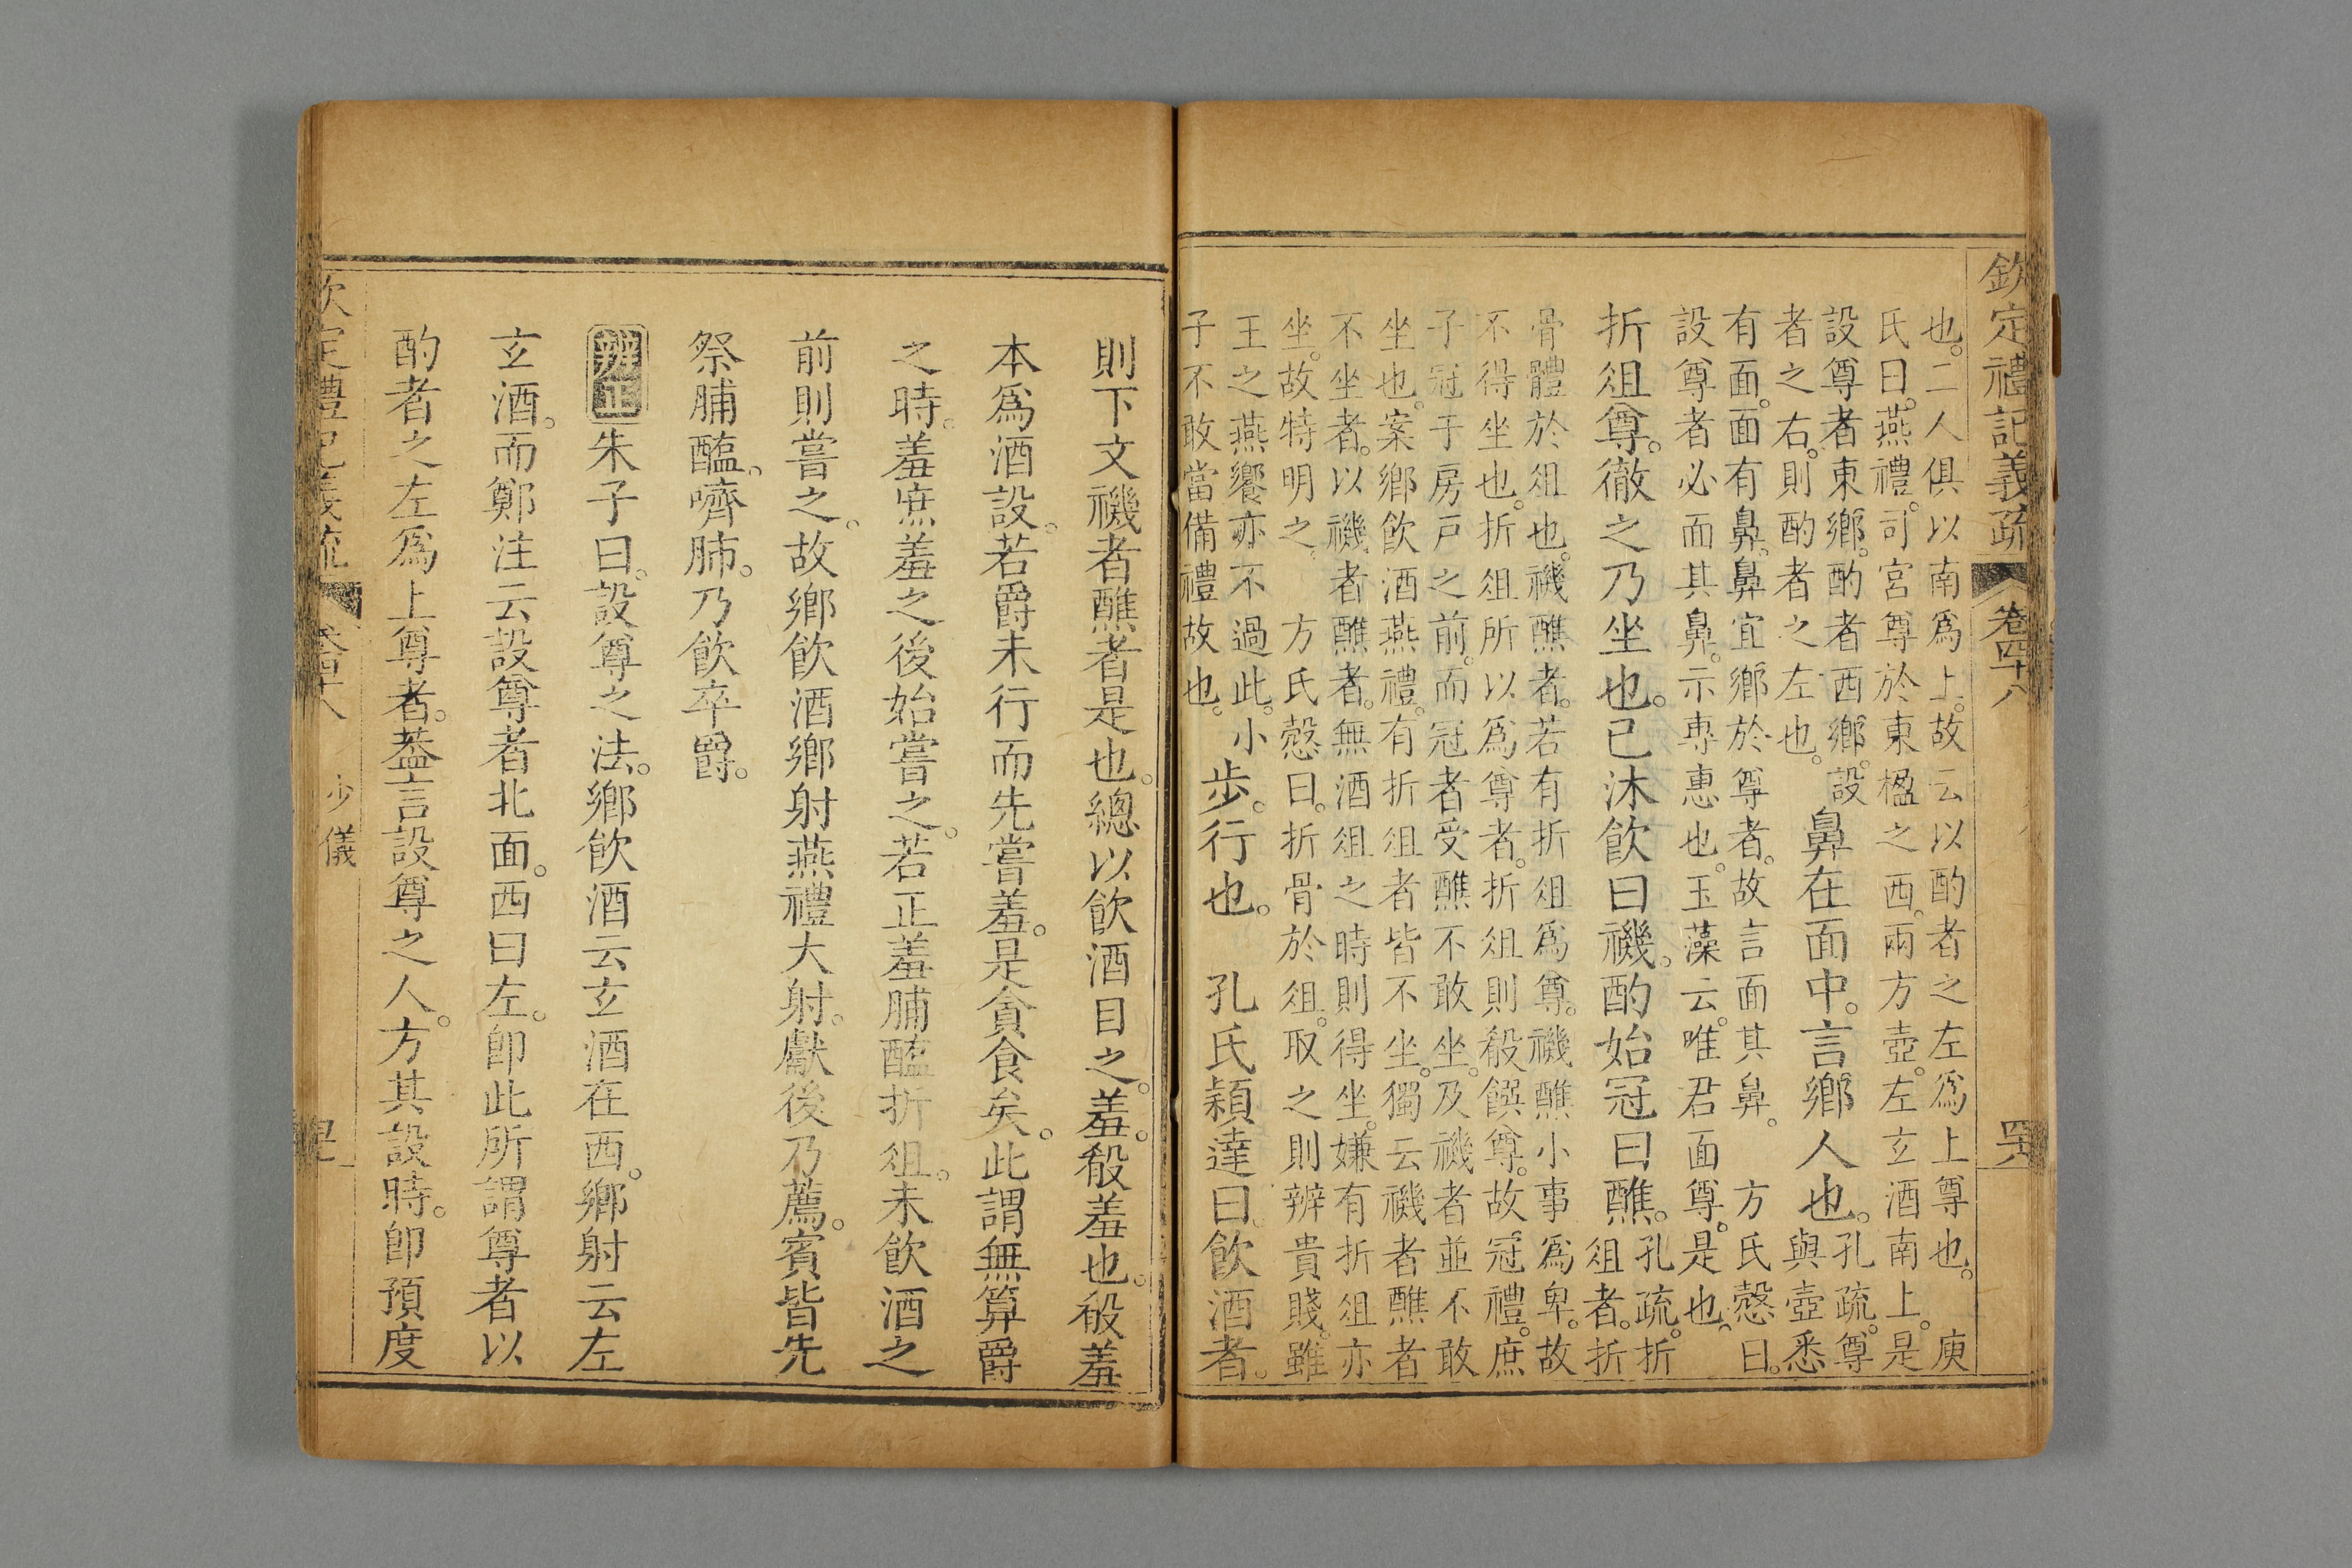 欽定禮記義疏 卷四十八
也。二人俱以南爲上。故云以酌者之左爲上尊也。 庾
氏曰。燕禮。司宮尊於東楹之西。兩方壺。左玄酒南上。是
設尊者東鄉。酌者西鄉。設
者之右。則酌者之左也。
鼻在面中。言鄉人也。
孔疏。尊
與壺悉
有面。面有鼻。鼻宜鄉於尊者。故言面其鼻。 方氏慤曰。
設尊者必面其鼻。示專惠也。玉藻云。唯君面尊。是也。
折俎尊。徹之乃坐也。已沐飲曰禨。酌始冠曰醮。
孔疏。折
俎者。折
骨體於俎也。禨醮者。若有折俎爲尊。禨醮小事爲卑。故
不得坐也。折俎所以爲尊者。折俎則殽饌尊。故冠禮。庶
子冠于房戶之前。而冠者受醮不敢坐。及禨者並不敢
坐也。案鄉飲酒燕禮。有折俎者皆不坐。獨云禨者醮者
不坐者。以禨者醮者。無酒俎之時則得坐。嫌有折俎亦
坐。故特明之。 方氏慤曰。折骨於俎。取之則辨貴賤。雖
王之燕饗亦不過此。小
子不敢當備禮故也。
步。行也。 孔氏穎達曰。飲酒者。
則下文禨者醮者是也。總以飲酒目之。羞。殽羞也。殽羞
本爲酒設。若爵未行而先嘗羞。是貪食矣。此謂無算爵
之時。羞庶羞之後始嘗之。若正羞脯醢折俎。未飲酒之
前則嘗之。故鄉飲酒鄉射燕禮大射。獻後乃薦。賓皆先
祭脯醢。嚌肺。乃飲卒爵。
辨正 朱子曰。設尊之法。鄉飲酒云玄酒在西。鄉射云左
玄酒。而鄭注云設尊者北面。西曰左。卽此所謂尊者以
酌者之左爲上尊者。葢言設尊之人。方其設時。卽預度
定禮記義疏 卷四十八 少儀